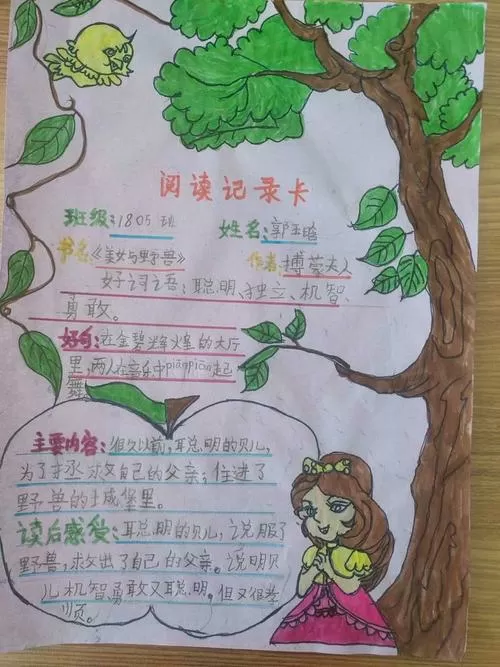 阅读记录卡
班级:1805班 姓名:郭玉晗
书名《美女与野兽》 作者:博蒙夫人
好词语:聪明、独立、机智、
勇敢。
好句:在金碧辉煌的大厅
里,两人在音乐中piānpiān起
舞
主要内容:很久以前,聪明的贝儿,
为了拯救自己的父亲;住进了
野兽的城堡里。
读后感受:聪明的贝儿,说服了
野兽,救出了自己的父亲。说明贝
儿机智勇敢又聪明。但又很孝
顺。